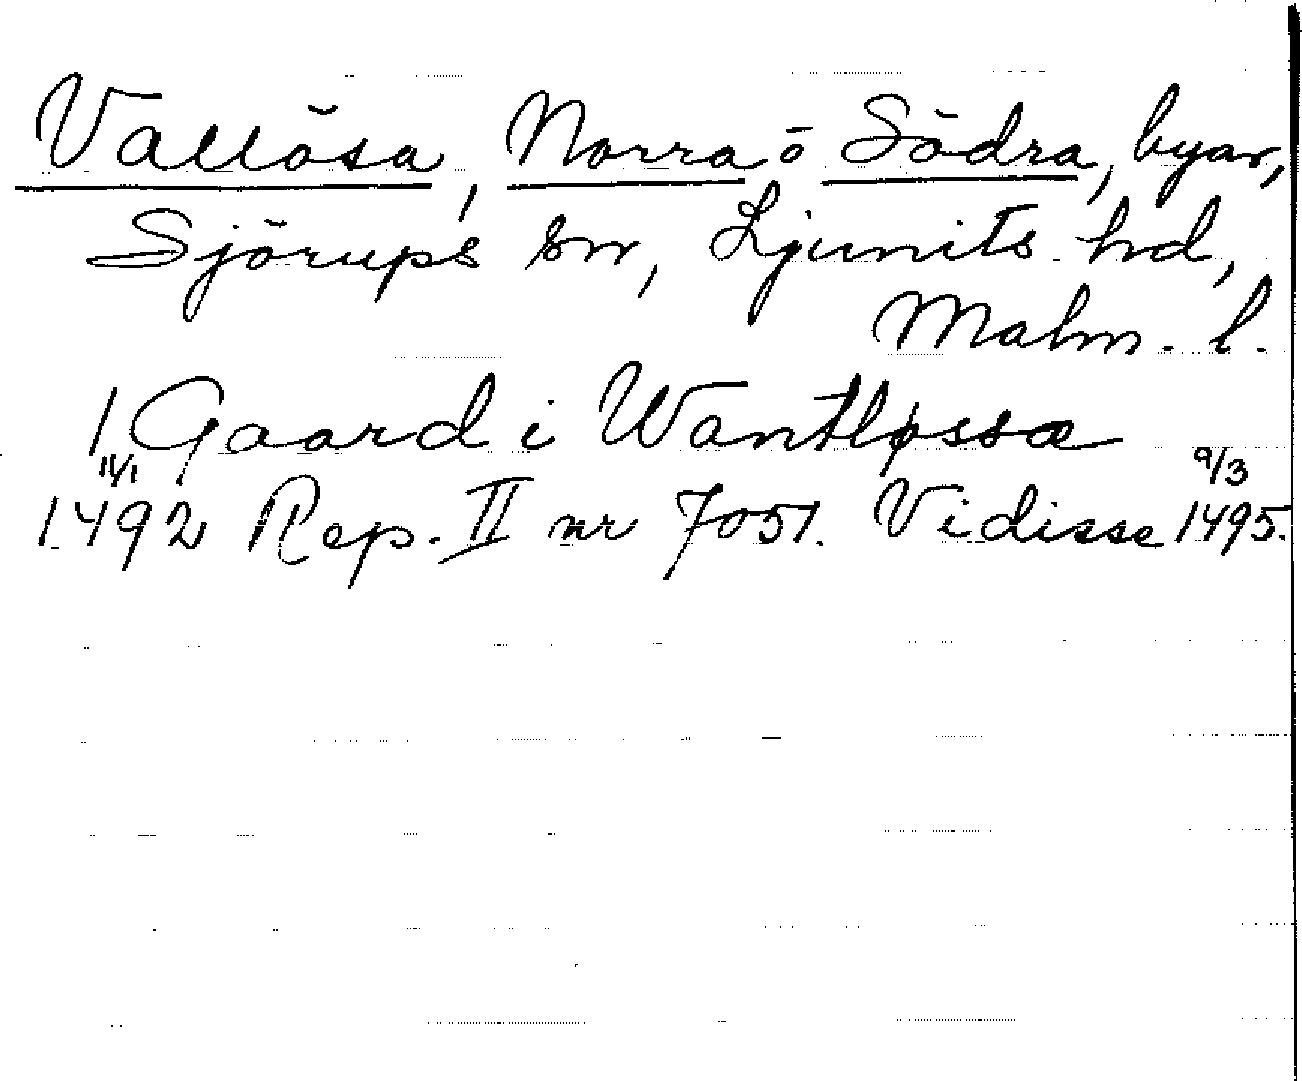 Vallösa, Norra o Södra, byar,
Sjörups sn, Ljunits hd,
Malm. l.
1 Gaard i Wantløssæ
11/1 9/3
1492 Rep. II nr 7051. Vidisse 1495.